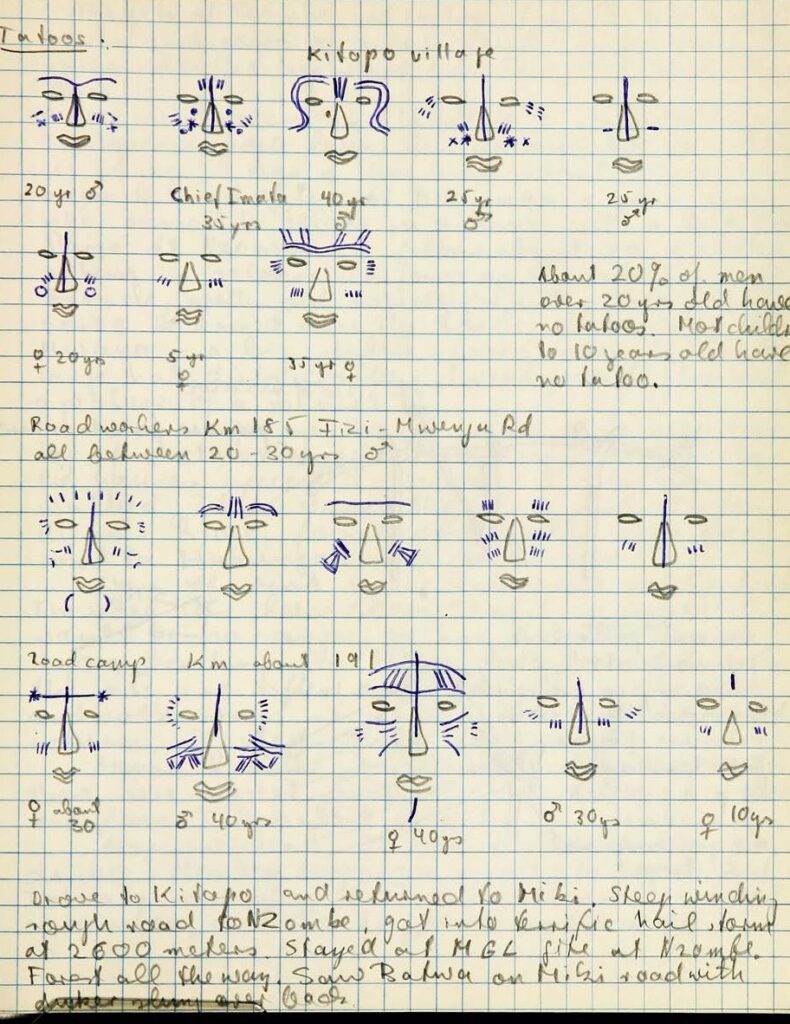 Tatoos.
Kitopo village
20 yr ♂
Chief Imata
35 yrs
40 yr
♂
25 yr
♂
25 yr
♂
♀ 20 yrs
5 yr
♀
35 yr ♀
About 20% of men
over 20 yrs old have
no tatoos. Most childr
to 10 years old have
no tatoo.
Road workers Km 185 Fizi - Mwenga Rd
all between 20 - 30 yrs ♂
Road camp Km about 191
♀ about
30
♂ 40 yrs
♀ 40 ys
♂ 30 ys
♀ 10 ys
Drove to Kitopo and returned to Miki. Steep winding
rough road to NZombe, got into terrific hail storm
at 2600 meters. Stayed at MGL gite at Nzombe.
Forest all the way. Saw Batwa on Miki road with
back